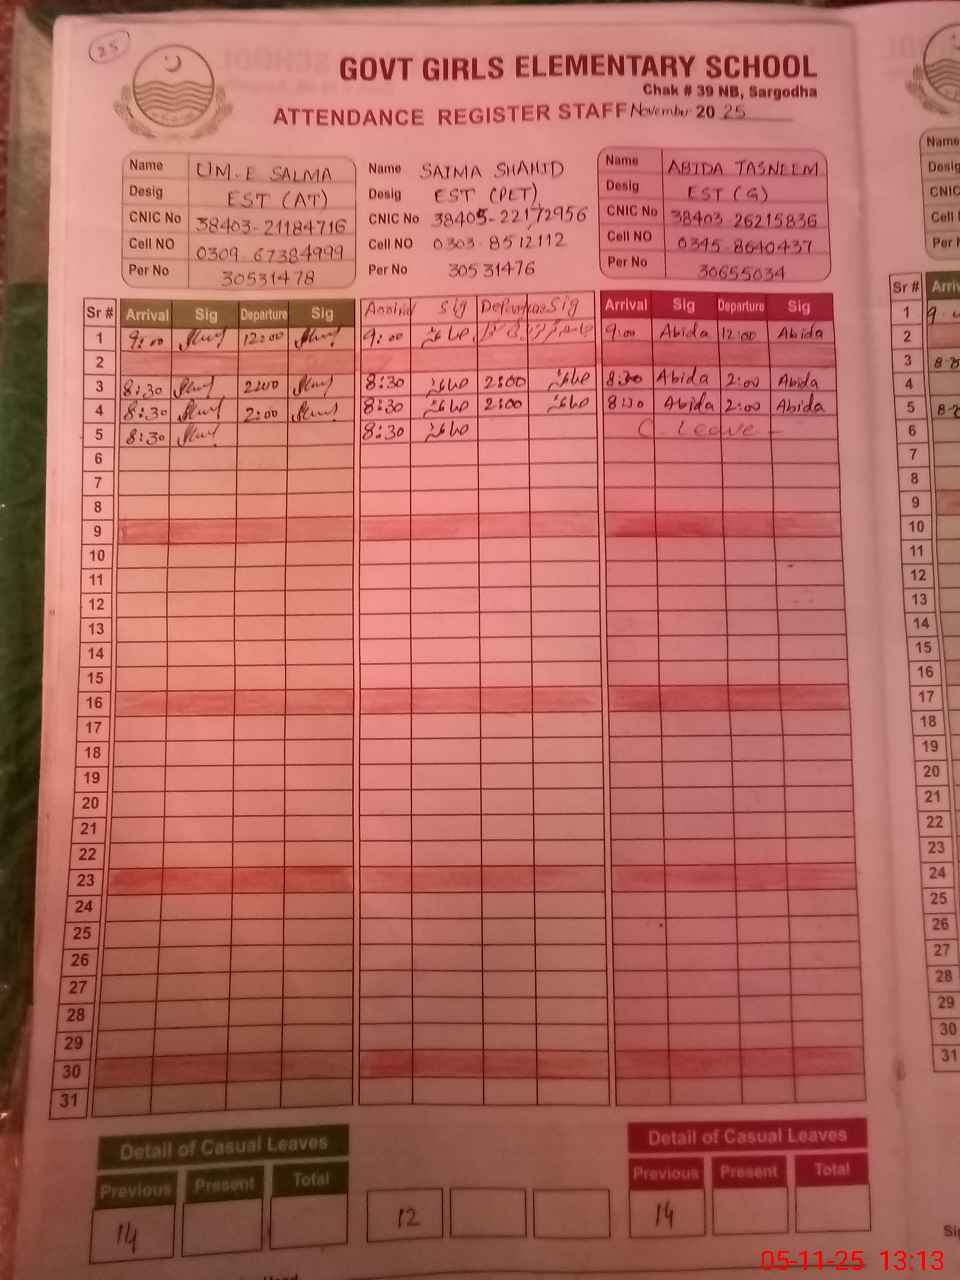 25
GOVT GIRLS ELEMENTARY SCHOOL
Chak # 39 NB, Sargodha
ATTENDANCE REGISTER STAFF November 20 25
Name UM-E SALMA Name SAIMA SHAHID Name ABIDA TASNEEM
Desig EST (AT) Desig EST (PET) Desig EST (G)
CNIC No 38403-21184716 CNIC No 38405-22172956 CNIC No 38403 26215836
Cell NO 0309 67384999 Cell NO 0303 8512112 Cell NO 0345 8640437
Per No 30531478 Per No 30531476 Per No 30655034
Sr # Arrival Sig Departure Sig Arrival Sig Departure Sig Arrival Sig Departure Sig
1 9:00 12:00 9:00 صائمہ 9:00 Abida 12:00 Abida
2
3 8:30 2:00 8:30 صائمہ 2:00 صائمہ 8:30 Abida 2:00 Abida
4 8:30 2:00 8:30 صائمہ 2:00 صائمہ 8:30 Abida 2:00 Abida
5 8:30 8:30 صائمہ C. Leave -
6
7
8
9
10
11
12
13
14
15
16
17
18
19
20
21
22
23
24
25
26
27
28
29
30
31
Detail of Casual Leaves Detail of Casual Leaves
Previous Present Total Previous Present Total
14 12 14
Sr #
1
2
3
4
5
6
7
8
9
10
11
12
13
14
15
16
17
18
19
20
21
22
23
24
25
26
27
28
29
30
31
05-11-25 13:13